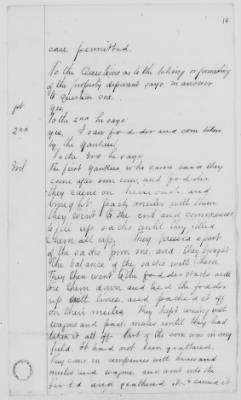 16
case permitted.
To the Questions as to the taking or furnishing
of the property deponent says in answer
to question one.
1st yes,
To the 2nd he says
2nd yes, I saw fodder and corn taken
by the Yankees,
To the 3rd he says
3rd The first Yankees who came said they
come after our corn, and fodder
They came on horseback, and
brought pack mules with them
they went to the crib and commenced
to fill up sacks until they filled
them all up. They pressed a part
of the sacks from me, and they brought
the balance of the sacks with them.
They then went to the fodder stacks and
tore them down and tied the fodder
up with lines, and packed it off
on their mules They kept coming with
wagons and pack mules until they had
taken it all off. Part of the corn was in my
field. It had not been gathered.
They came in companies with horses and
mules and wagons, and went into the
field and gathered it & carried it